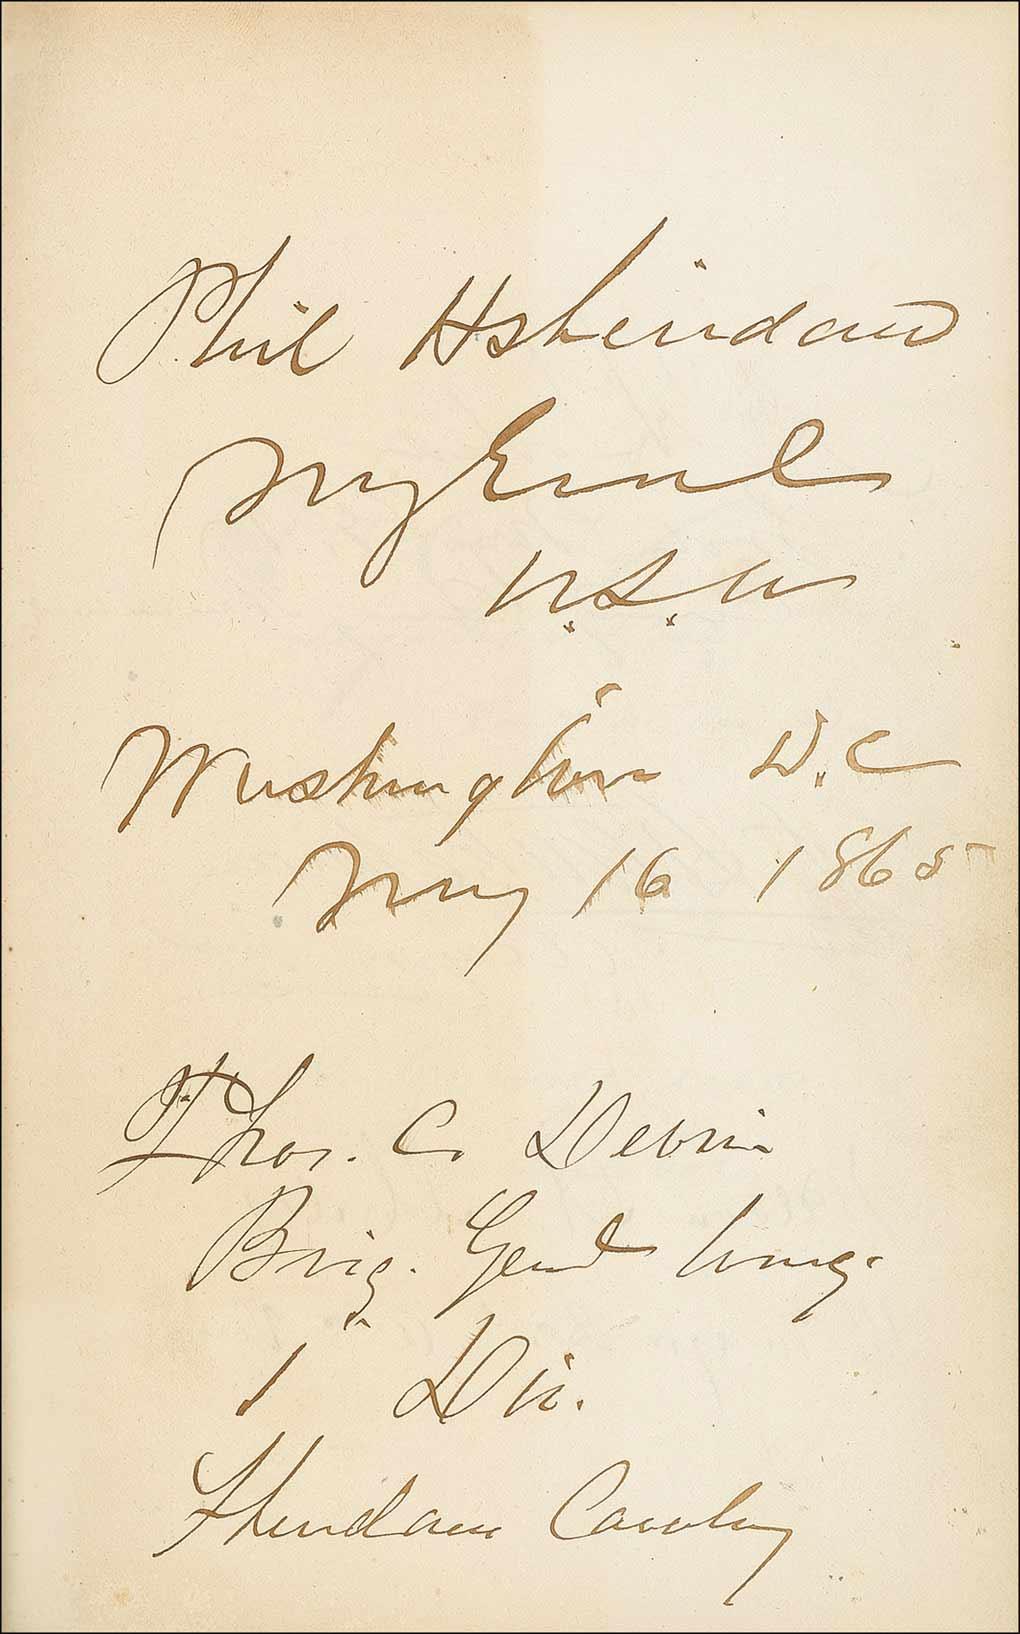 Phil H Sheridan
Maj Genl
U.S.A
Washington D.C
May 16 1865
Thos. C. Devin
Brig. Genl Comdg.
1" Div.
Sheridans Cavalry